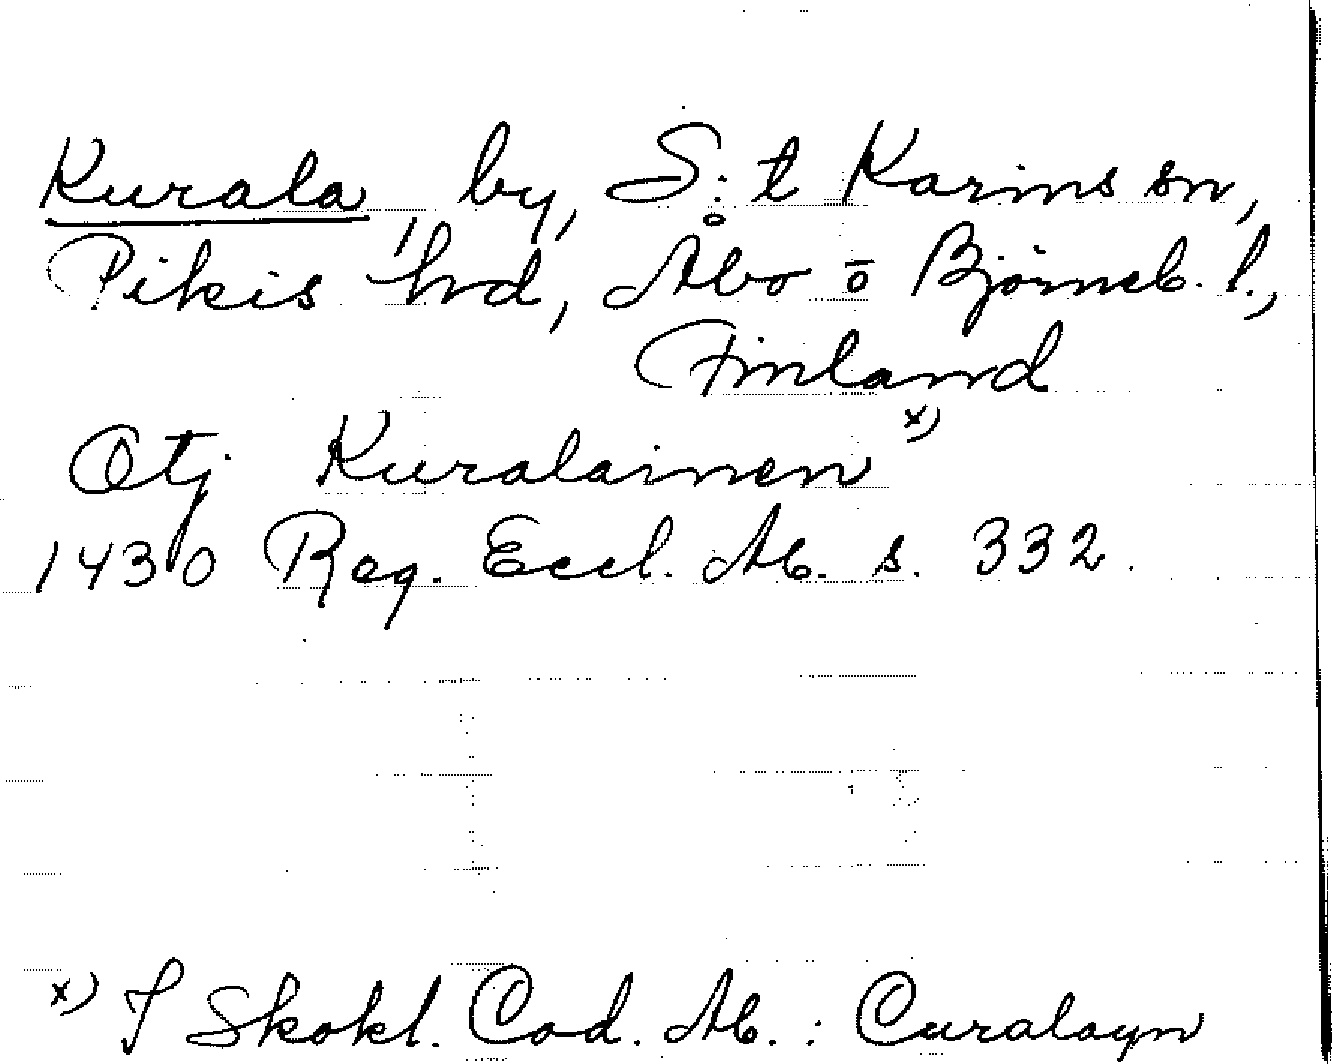 Kurala, by, S:t Karins sn,
Pikis hrd, Åbo o Björneb. l.,
Finland
Otj Kuralainen x)
1430 Reg. Eccl. Ab. s. 332.
x) I Skokl. Cod. Ab. : Curalayn